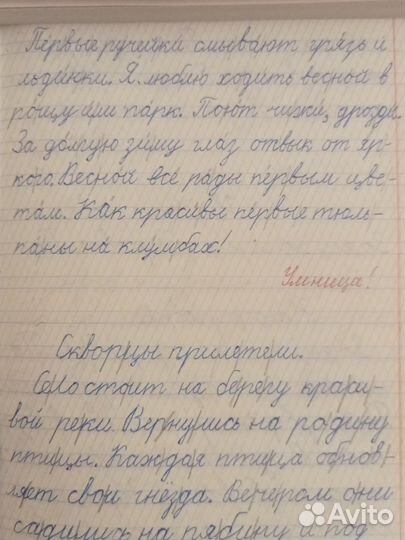 Первые ручейки смывают грязь и
льдинки. Я люблю ходить весной в
рощу или парк. Поют чижи, дрозды.
За долгую зиму глаз отвык от яр-
кого. Весной все рады первым цве-
там. Как красивы первые тюль-
паны на клумбах!
Умница!
Скворцы прилетели.
Село стоит на берегу краси-
вой реки. Вернулись на родину
птицы. Каждая птица обнов-
ляет свои гнёзда. Вечером они
садились на рябину и под
Avito